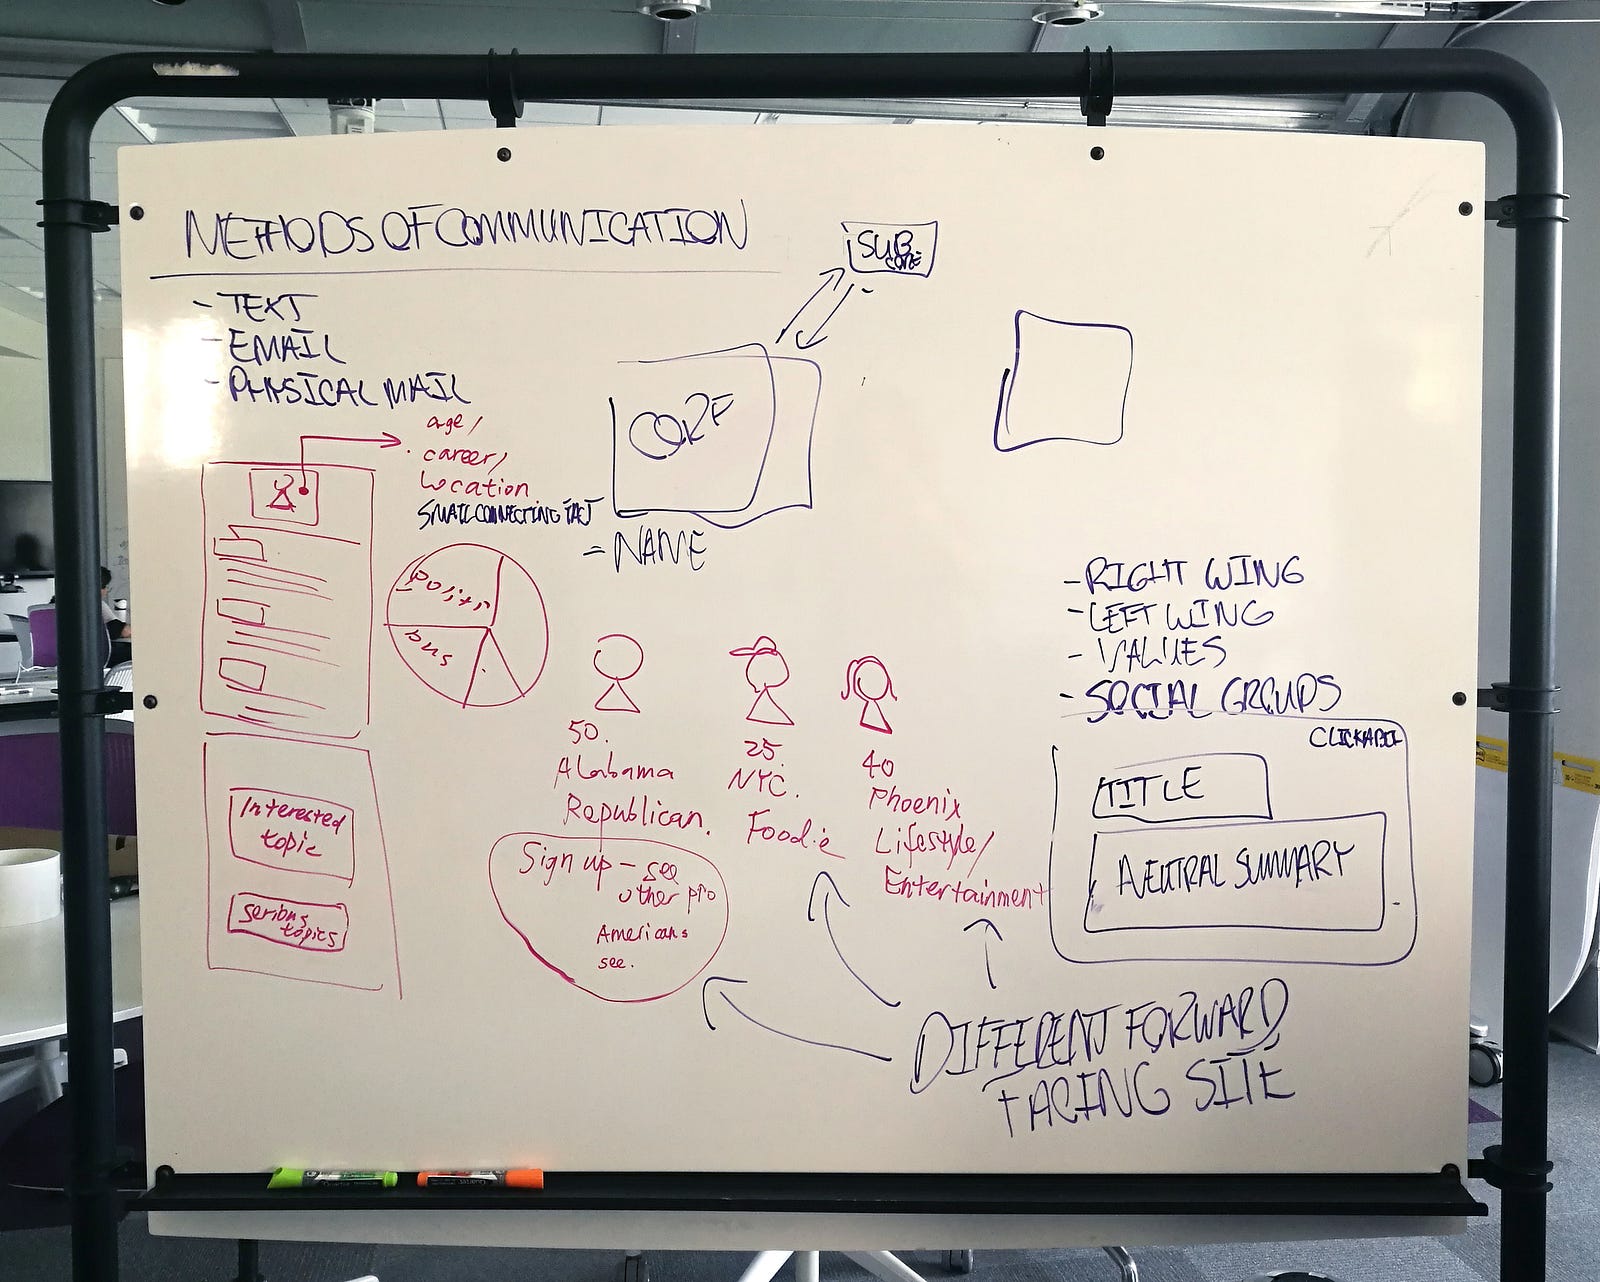 METHODS OF COMMUNICATION
- TEXT
- EMAIL
- PHYSICAL MAIL
SUB
CORE
CORE
= NAME
age/
career/
location
SMALL CONNECTING FACT
Politi
bus
Interested
topic
serious
topics
50.
Alabama
Republican.
25.
NYC.
Foodie
40
Phoenix
Lifestyle/
Entertainment
Sign up - see
other pro
Americans
see.
- RIGHT WING
- LEFT WING
- VALUES
- SOCIAL GROUPS
CLICKABLE
TITLE
NEUTRAL SUMMARY
DIFFERENT FORWARD
FACING SITE